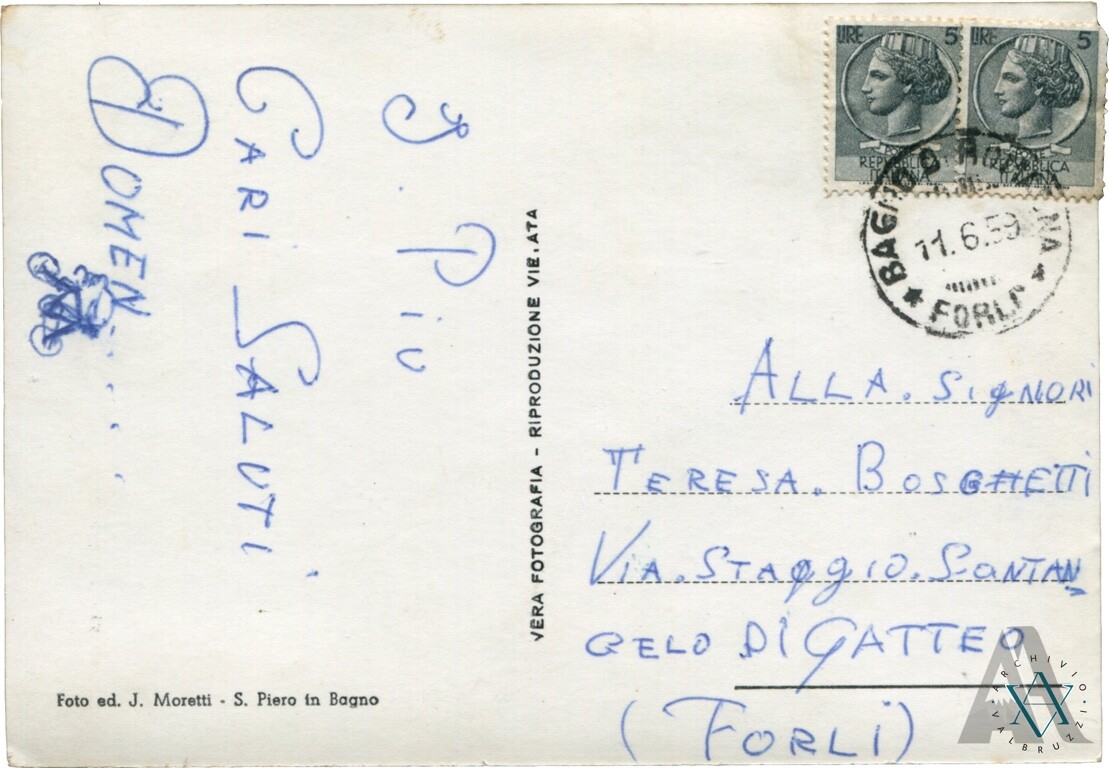 I. Più
Cari Saluti
Domen....
Foto ed. J. Moretti - S. Piero in Bagno
VERA FOTOGRAFIA - RIPRODUZIONE VIE.ATA
LIRE 5
POSTE
REPVBBLICA
ITALIANA
LIRE 5
POSTE
REPVBBLICA
ITALIANA
BAGNO DI ROMAGNA
11.6.59
FORLI
ALLA. SigNORi
TERESA. BOSGHETTI
VIA. STAggIO. SANTAN
GELO DI GATTEO
(FORLÌ)
ARCHIVIO
VALBRUZZI